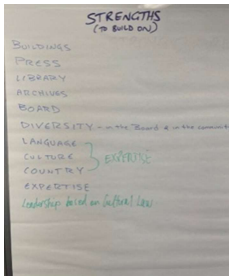 STRENGTHS
(TO BUILD ON)
BUILDINGS
PRESS
LIBRARY
ARCHIVES
BOARD
DIVERSITY - in the Board & in the communit
LANGUAGE
CULTURE } EXPERTISE
COUNTRY
EXPERTISE
Leadership based on Cultural Law